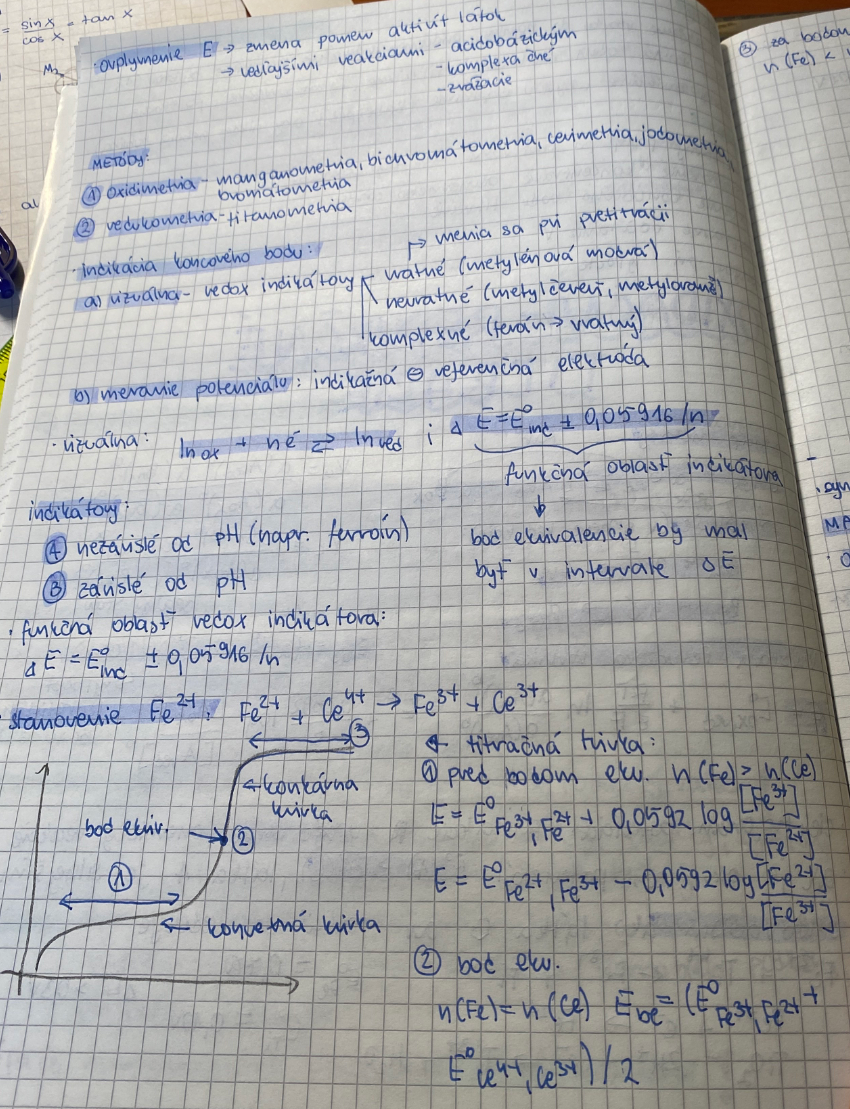 = sin x / cos x = tan x
· ovplyvnenie E → zmena pomeru aktivít látok
→ vedľajšími reakciami - acidobázickým
- komplexačné
- zrážacie
METÓDY:
① oxidimetria - manganometria, bichromátometria, cerimetria, jodometria,
bromátometria
② reduktometria - titanometria
· indikácia koncového bodu:
↳ menia sa pri pretitrácii
a) vizuálna - redox indikátory
vratné (metylénová modrá)
nevratné (metylčerveň, metyloranž)
komplexné (feroín → vratný)
b) meranie potenciálu: indikačná ⊖ referenčná elektróda
· vizuálna: Inox + né ⇄ Inred ; Δ E = E⁰ind ± 0,05916/n
funkčná oblasť indikátora
↓
bod ekvivalencie by mal
byť v intervale ΔE
indikátory:
Ⓐ nezávislé od pH (napr. ferroín)
Ⓑ závislé od pH
· funkčná oblasť redox indikátora:
Δ E = E⁰ind ± 0,05916/n
stanovenie Fe²⁺: Fe²⁺ + Ce⁴⁺ → Fe³⁺ + Ce³⁺
③
← konkávna
krivka
bod ekviv. → ②
①
← konvexná krivka
← titračná krivka:
① pred bodom ekv. n(Fe) > n(Ce)
E = E⁰Fe³⁺,Fe²⁺ + 0,0592 log [Fe³⁺] / [Fe²⁺]
E = E⁰Fe²⁺,Fe³⁺ - 0,0592 log [Fe²⁺] / [Fe³⁺]
② bod ekv.
n(Fe) = n(Ce) Ebe = (E⁰Fe³⁺,Fe²⁺ +
E⁰Ce⁴⁺,Ce³⁺) / 2
③ za bodom
n(Fe) <